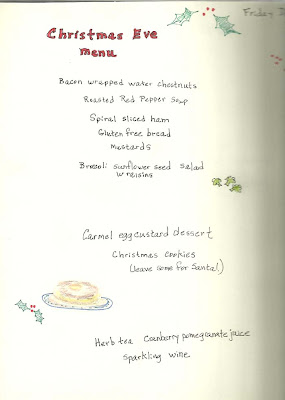 Friday
Christmas Eve
menu
Bacon wrapped water chestnuts
Roasted Red Pepper Soup
Spiral sliced ham
Gluten free bread
Mustards
Brocoli sunflower seed salad
w raisins
Carmel egg custard dessert
Christmas cookies
(leave some for Santa!)
Herb tea Cranberry pomegranate juice
sparkling wine